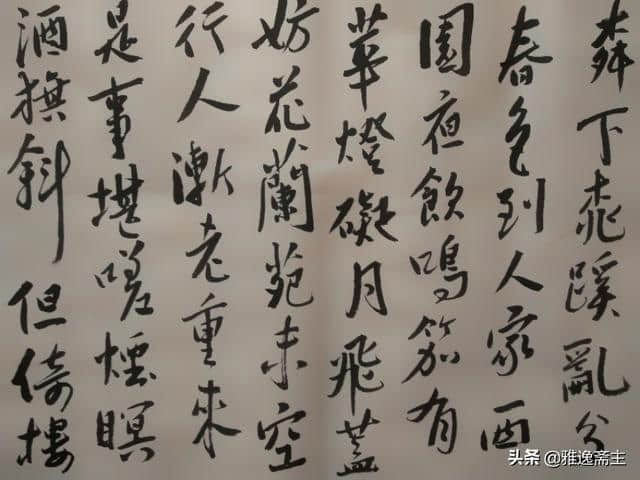 下桃蹊亂分
春色到人家西
園夜飲鳴笳有
華燈礙月飛蓋
妨花蘭苑未空
行人漸老重來
是事堪嗟煙暝
酒旗斜但倚樓
头条 @雅逸斋主